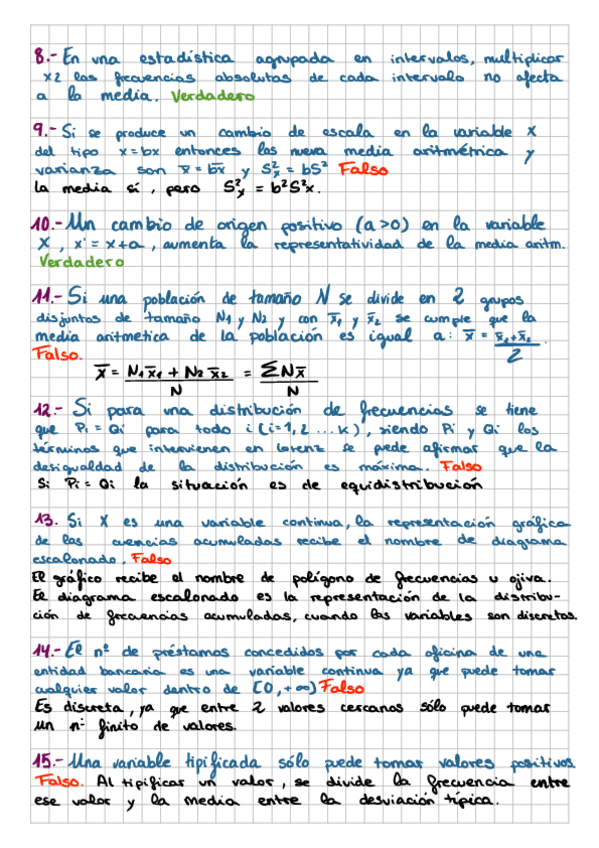 8.- En una estadística agrupada en intervalos, multiplicar
x2 las frecuencias absolutas de cada intervalo no afecta
a la media. Verdadero
9.- Si se produce un cambio de escala en la variable X
del tipo x = bx entonces las nueva media aritmétrica y
varianza son x̄ = bx̄ y S²ₓ = bS² Falso
la media sí, pero S²ₓ = b²S²x.
10.- Un cambio de origen positivo (a>0) en la variable
X, x' = x+a, aumenta la representatividad de la media aritm.
Verdadero
11.- Si una población de tamaño N se divide en 2 grupos
disjuntos de tamaño N₁ y N₂ y con x̄₁ y x̄₂ se cumple que la
media aritmetica de la población es igual a: x̄ = x̄₁+x̄₂ / 2
Falso.
x̄ = N₁x̄₁ + N₂x̄₂ / N = ΣNx̄ / N
12.- Si para una distribución de frecuencias se tiene
que Pi = Qi para todo i (i=1, 2 ... k), siendo Pi y Qi los
términos que intervienen en Lorenz se pede afirmar que la
desigualdad de la distribución es máxima. Falso
Si Pi = Qi la situación es de equidistribución
13. Si X es una variable continua, la representación gráfica
de las cuencias acumuladas recibe el nombre de diagrama
escalonado. Falso
El gráfico recibe el nombre de polígono de frecuencias u ojiva.
El diagrama escalonado es la representación de la distribu-
ción de frecuencias acumuladas, cuando las variables son discretas.
14.- El nº de préstamos concedidos por cada oficina de una
entidad bancaria es una variable continua ya que puede tomar
cualquier valor dentro de [0, +∞) Falso
Es discreta, ya que entre 2 valores cercanos sólo puede tomar
un nº finito de valores.
15.- Una variable tipificada sólo puede tomar valores positivos.
Falso. Al tipificar un valor, se divide la frecuencia entre
ese valor y la media entre la desviación típica.